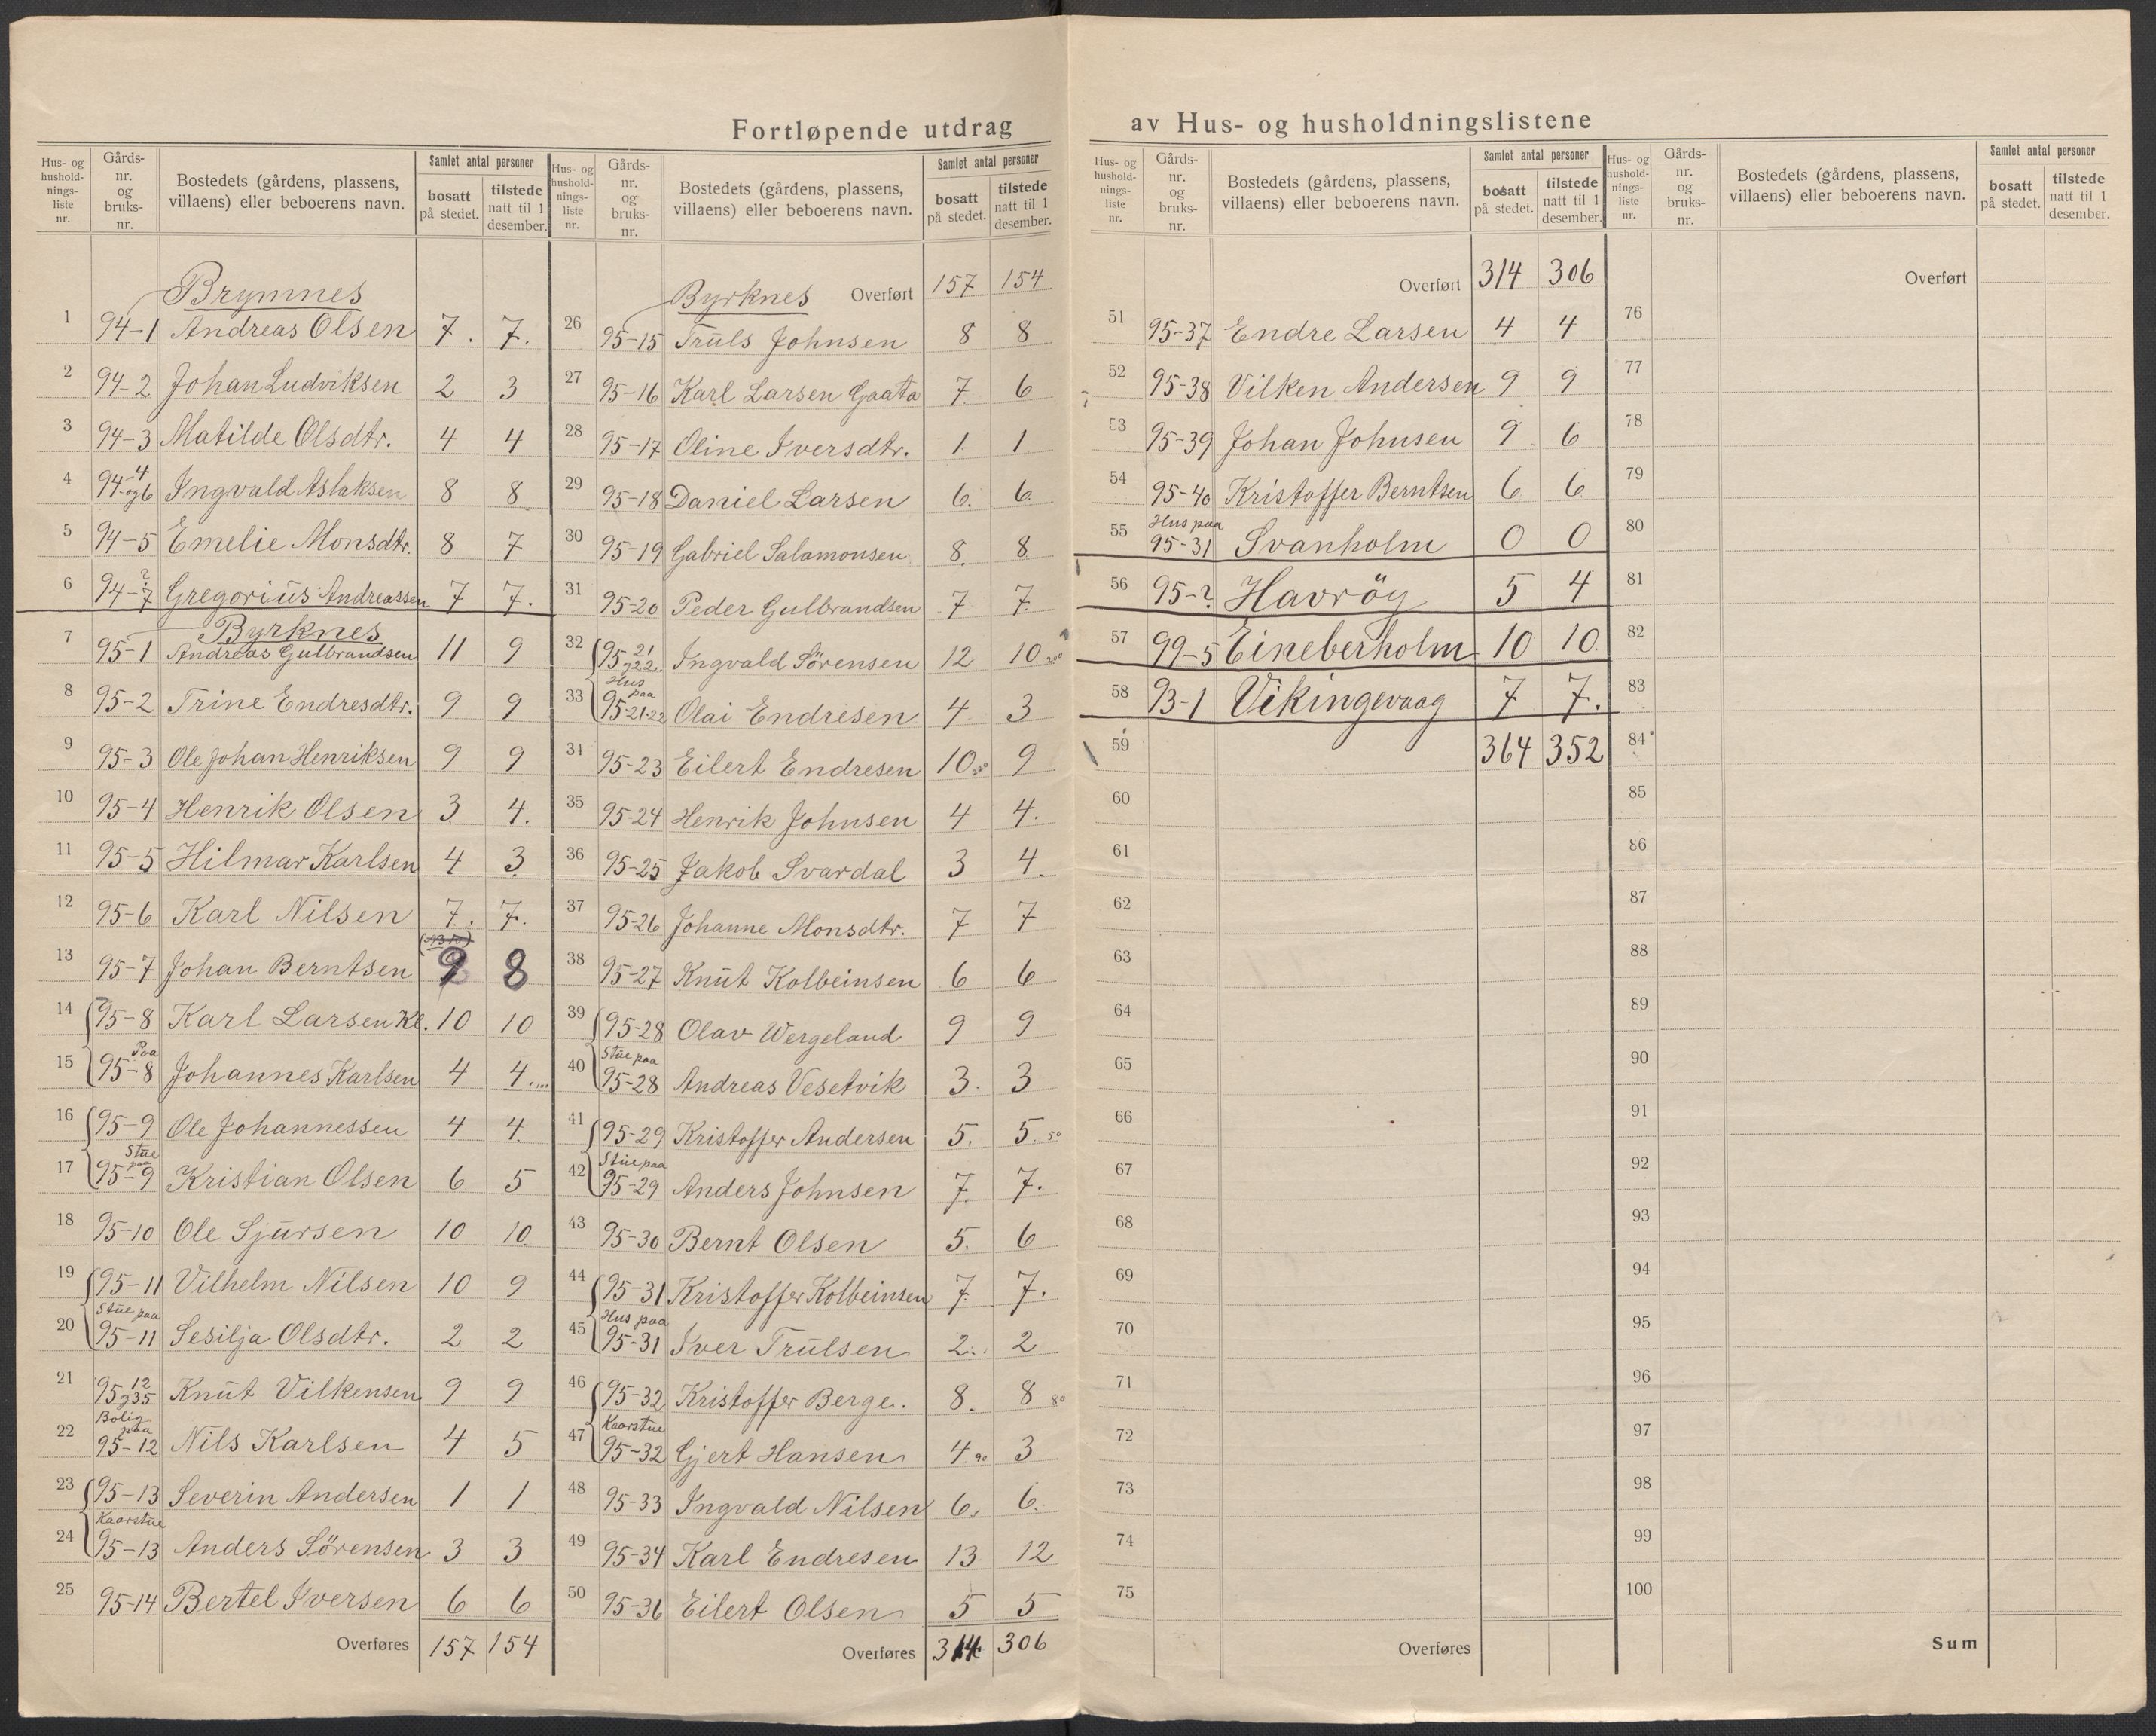 Fortløpende utdrag av Hus- og husholdningslistene
Hus- og husholdnings-liste nr. | Gårds-nr. og bruks-nr. | Bostedets (gårdens, plassens, villaens) eller beboerens navn. | Samlet antal personer | bosatt på stedet. | tilstede natt til 1 desember.
Brymnes
1 94-1 Andreas Olsen 7. 7.
2 94-2 Johan Ludviksen 2 3
3 94-3 Matilde Olsdtr. 4 4
4 94-4 og 6 Ingvald Aslaksen 8 8
5 94-5 Emelie Monsdtr. 8 7
6 94-7 ? Gregorius Andreassen 7 7.
Byrknes
7 95-1 Andreas Gulbrandsen 11 9
8 95-2 Trine Endresdtr. 9 9
9 95-3 Ole Johan Henriksen 9 9
10 95-4 Henrik Olsen 3 4.
11 95-5 Hilmar Karlsen 4 3
12 95-6 Karl Nilsen 7. 7.
13 95-7 Johan Berntsen 9 8
14 95-8 Karl Larsen Kl. 10 10
15 Paa 95-8 Johannes Karlsen 4 4.
16 95-9 Ole Johannessen 4 4.
17 Stue paa 95-9 Kristian Olsen 6 5
18 95-10 Ole Sjursen 10 10.
19 95-11 Vilhelm Nilsen 10 9
20 Stue paa 95-11 Sesilja Olsdtr. 2 2
21 95-12 og 35 Knut Vilkensen 9 9
22 Bolig paa 95-12 Nils Karlsen 4 5
23 95-13 Severin Andersen 1 1
24 Kaarstue 95-13 Anders Sörensen 3 3
25 95-14 Bertel Iversen 6 6
Overføres 157 154
Hus- og husholdnings-liste nr. | Gårds-nr. og bruks-nr. | Bostedets (gårdens, plassens, villaens) eller beboerens navn. | Samlet antal personer | bosatt på stedet. | tilstede natt til 1 desember.
Byrknes Overført 157 154
26 95-15 Truls Johnsen 8 8
27 95-16 Karl Larsen Gaata 7 6
28 95-17 Oline Iversdtr. 1 1
29 95-18 Daniel Larsen 6. 6.
30 95-19 Gabriel Salamonsen 8. 8
31 95-20 Peder Gulbrandsen 7 7
32 95-21 og 22. Ingvald Sörensen 12 10
33 Hus paa 95-21-22 Olai Endresen 4 3
34 95-23 Eilert Endresen 10 9
35 95-24 Henrik Johnsen 4 4.
36 95-25 Jakob Svardal 3 4.
37 95-26 Johanne Monsdtr. 7 7
38 95-27 Knut Kolbeinsen 6 6
39 95-28 Olav Wergeland 9 9
40 Stue paa 95-28 Andreas Vesetvik 3. 3
41 95-29 Kristoffer Andersen 5. 5.
42 Stue paa 95-29 Anders Johnsen 7 7.
43 95-30 Bernt Olsen 5. 6
44 95-31 Kristoffer Kolbeinsen 7 7.
45 Hus paa 95-31 Iver Trulsen 2. 2
46 95-32 Kristoffer Berge. 8. 8
47 Kaarstue 95-32 Gjert Hansen 4 3
48 95-33 Ingvald Nilsen 6. 6.
49 95-34 Karl Endresen 13 12
50 95-36 Eilert Olsen 5 5
Overføres 314 306
Hus- og husholdnings-liste nr. | Gårds-nr. og bruks-nr. | Bostedets (gårdens, plassens, villaens) eller beboerens navn. | Samlet antal personer | bosatt på stedet. | tilstede natt til 1 desember.
Overført 314 306
51 95-37 Endre Larsen 4 4
52 95-38 Vilken Andersen 9 9
53 95-39 Johan Johnsen 9. 6
54 95-40 Kristoffer Berntsen 6 6
55 Hus paa 95-31 Svanholm 0 0
56 95-? Havröy 5 4
57 99-5 Eineberholm 10 10.
58 93-1 Vikingevaag 7 7.
59 364 352
60
61
62
63
64
65
66
67
68
69
70
71
72
73
74
75
Overføres
Hus- og husholdnings-liste nr. | Gårds-nr. og bruks-nr. | Bostedets (gårdens, plassens, villaens) eller beboerens navn. | Samlet antal personer | bosatt på stedet. | tilstede natt til 1 desember.
Overført
76
77
78
79
80
81
82
83
84
85
86
87
88
89
90
91
92
93
94
95
96
97
98
99
100
Sum